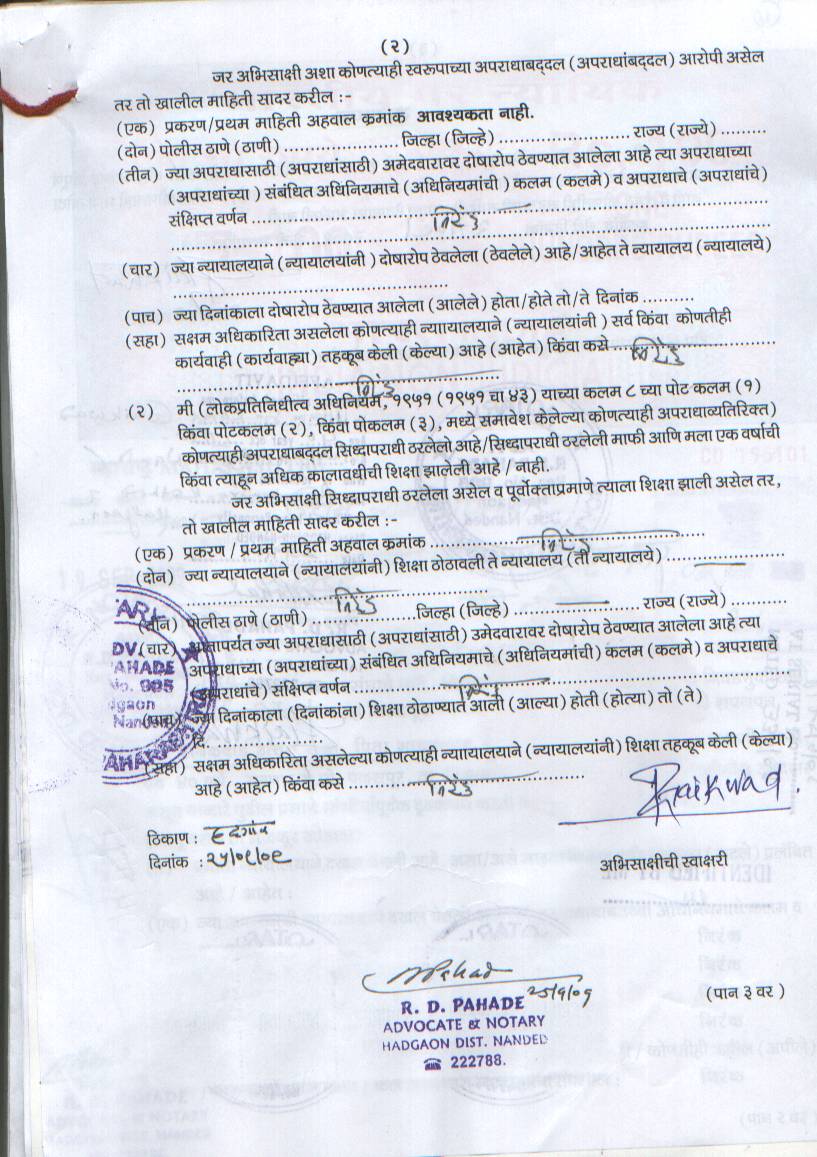 (२)
जर अभिसाक्षी अशा कोणत्याही स्वरूपाच्या अपराधाबद्दल (अपराधांबद्दल) आरोपी असेल
तर तो खालील माहिती सादर करील :-
(एक) प्रकरण/प्रथम माहिती अहवाल क्रमांक आवश्यकता नाही.
(दोन) पोलीस ठाणे (ठाणी) .................... जिल्हा (जिल्हे) ........................ राज्य (राज्ये) .........
(तीन) ज्या अपराधासाठी (अपराधांसाठी) अमेदवारावर दोषारोप ठेवण्यात आलेला आहे त्या अपराधाच्या
(अपराधांच्या ) संबंधित अधिनियमाचे (अधिनियमांची ) कलम (कलमे) व अपराधाचे (अपराधांचे)
संक्षिप्त वर्णन ........ निरंक ........
(चार) ज्या न्यायालयाने (न्यायालयांनी ) दोषारोप ठेवलेला (ठेवलेले) आहे/आहेत ते न्यायालय (न्यायालये)
..................................................
(पाच) ज्या दिनांकाला दोषारोप ठेवण्यात आलेला (आलेले) होता/होते तो/ते दिनांक ..........
(सहा) सक्षम अधिकारिता असलेला कोणत्याही न्याायालयाने (न्यायालयांनी ) सर्व किंवा कोणतीही
कार्यवाही (कार्यवाह्या) तहकूब केली (केल्या) आहे (आहेत) किंवा कसे ..... निरंक .....
........ निरंक ........
(२) मी (लोकप्रतिनिधीत्व अधिनियम, १९५१ (१९५१ चा ४३) याच्या कलम ८ च्या पोट कलम (१)
किंवा पोटकलम (२), किंवा पोकलम (३), मध्ये समावेश केलेल्या कोणत्याही अपराधाव्यतिरिक्त)
कोणत्याही अपराधाबद्दल सिध्दापराधी ठरलेलो आहे/सिध्दापराधी ठरलेली माफी आणि मला एक वर्षाची
किंवा त्याहून अधिक कालावधीची शिक्षा झालेली आहे / नाही.
जर अभिसाक्षी सिध्दापराधी ठरलेला असेल व पूर्वोक्ताप्रमाणे त्याला शिक्षा झाली असेल तर,
तो खालील माहिती सादर करील :-
(एक) प्रकरण / प्रथम माहिती अहवाल क्रमांक ........ निरंक ........
(दोन) ज्या न्यायालयाने (न्यायालयांनी) शिक्षा ठोठावली ते न्यायालय (ती न्यायालये) ..........
........ निरंक ........
(तीन) पोलीस ठाणे (ठाणी) .................. जिल्हा (जिल्हे) .................. राज्य (राज्ये) ..........
(चार) आतापर्यत ज्या अपराधासाठी (अपराधांसाठी) उमेदवारावर दोषारोप ठेवण्यात आलेला आहे त्या
अपराधाच्या (अपराधांच्या) संबंधित अधिनियमाचे (अधिनियमांची) कलम (कलमे) व अपराधाचे
(अपराधांचे) संक्षिप्त वर्णन ........ निरंक ........
(पाच) ज्या दिनांकाला (दिनांकांना) शिक्षा ठोठाण्यात आली (आल्या) होती (होत्या) तो (ते)
दि. ..................................
(सहा) सक्षम अधिकारिता असलेल्या कोणत्याही न्याायालयाने (न्यायालयांनी) शिक्षा तहकूब केली (केल्या)
आहे (आहेत) किंवा कसे ........ निरंक ........
ठिकाण : हदगांव
दिनांक : २५/०९/०९
अभिसाक्षीची स्वाक्षरी
25/9/09
R. D. PAHADE
ADVOCATE & NOTARY
HADGAON DIST. NANDED
☎ 222788.
(पान ३ वर )